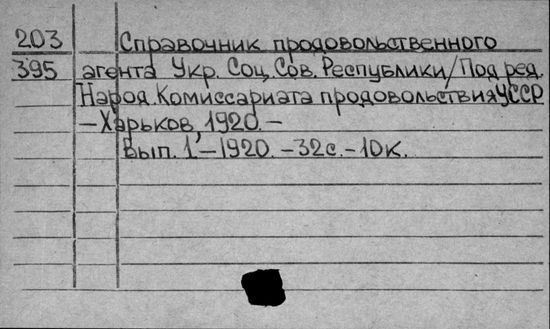 203 Справочник продовольственного
395 агента Укр. Соц. Сов. Республики/Под ред.
Народ. Комиссариата продовольствия УССР
– Харьков, 1920. –
Вып. 1. – 1920. – 32с. – 10к.